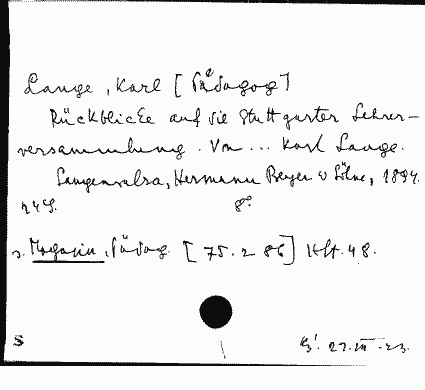 Lange, Karl [Pädagog]
Rückblicke auf die Stuttgarter Lehrer-
versammlung. Von ... Karl Lange.
Langensalza, Hermann Beyer u Söhne, 1894.
24 S. 8°
s. Magazin, Pädag. [75.2 86] Hft. 48.
S 27.III.23.